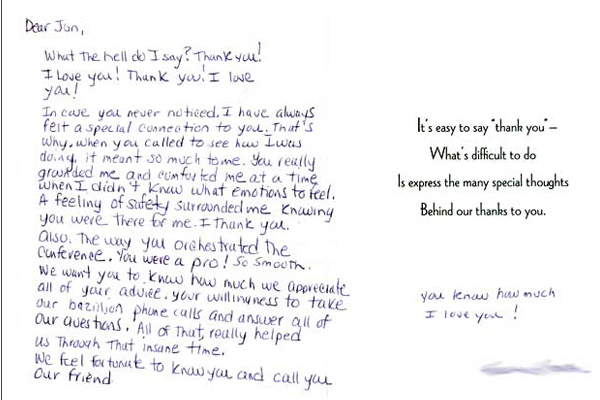 Dear Jan,
What the hell do I say? Thank you!
I Love you! Thank you! I love
you!
In case you never noticed, I have always
felt a special connection to you. That's
why, when you called to see how I was
doing, it meant so much to me. You really
grounded me and comforted me at a time
when I didn't know what emotions to feel.
A feeling of safety surrounded me knowing
you were there for me. I Thank you.
Also. The way you orchestrated the
Conference. You were a pro! So Smooth.
We want you to know how much we appreciate
all of your advice, your willingness to take
our bazillion phone calls and answer all of
our questions. All of That, really helped
us Through That insane time.
We feel fortunate to know you and call you
our friend
It's easy to say "thank you" –
What's difficult to do
Is express the many special thoughts
Behind our thanks to you.
you know how much
I love you!